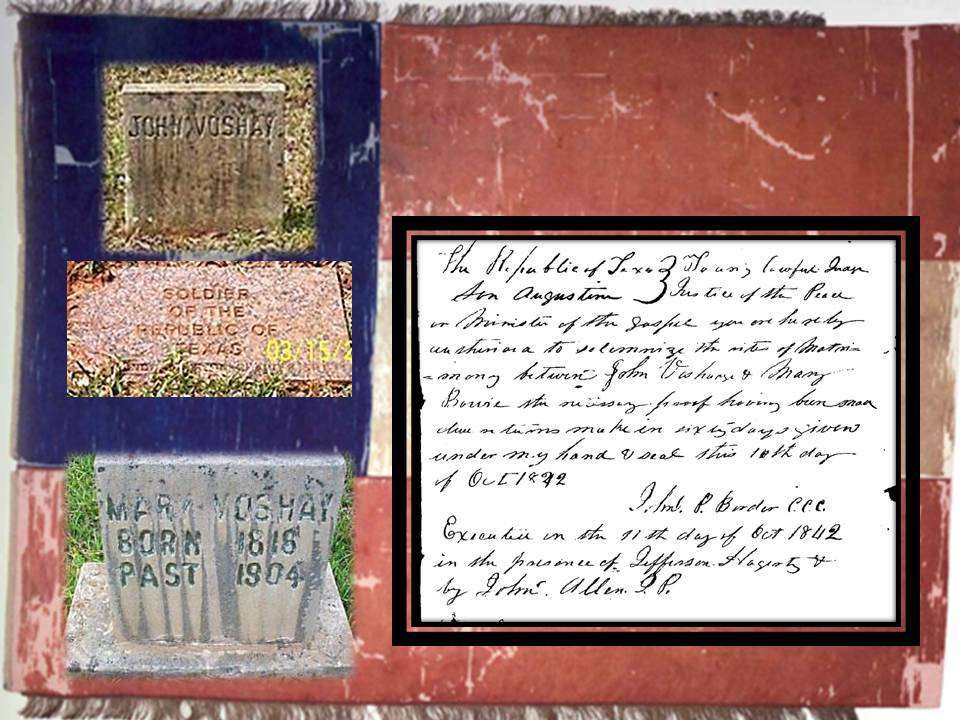 JOHN VOSHAY
SOLDIER
OF THE
REPUBLIC OF
TEXAS
03/15/2
MARY VOSHAY
BORN 1818
PAST 1904
The Republic of Texas To any lawful
San Augustine Justice of the Peace
or Minister of the Gospel you are hereby
to solemnize the rites of Matri=
=mony between John & Mary
Bowie the necessary proof having been made
due returns make in sixty days given
under my hand & seal this 10th day
of Oct 1842
John. P. Border C.C.C.
Executed on the 11th day of Oct 1842
in the presence of Jefferson &
by John. Allen. J.P.